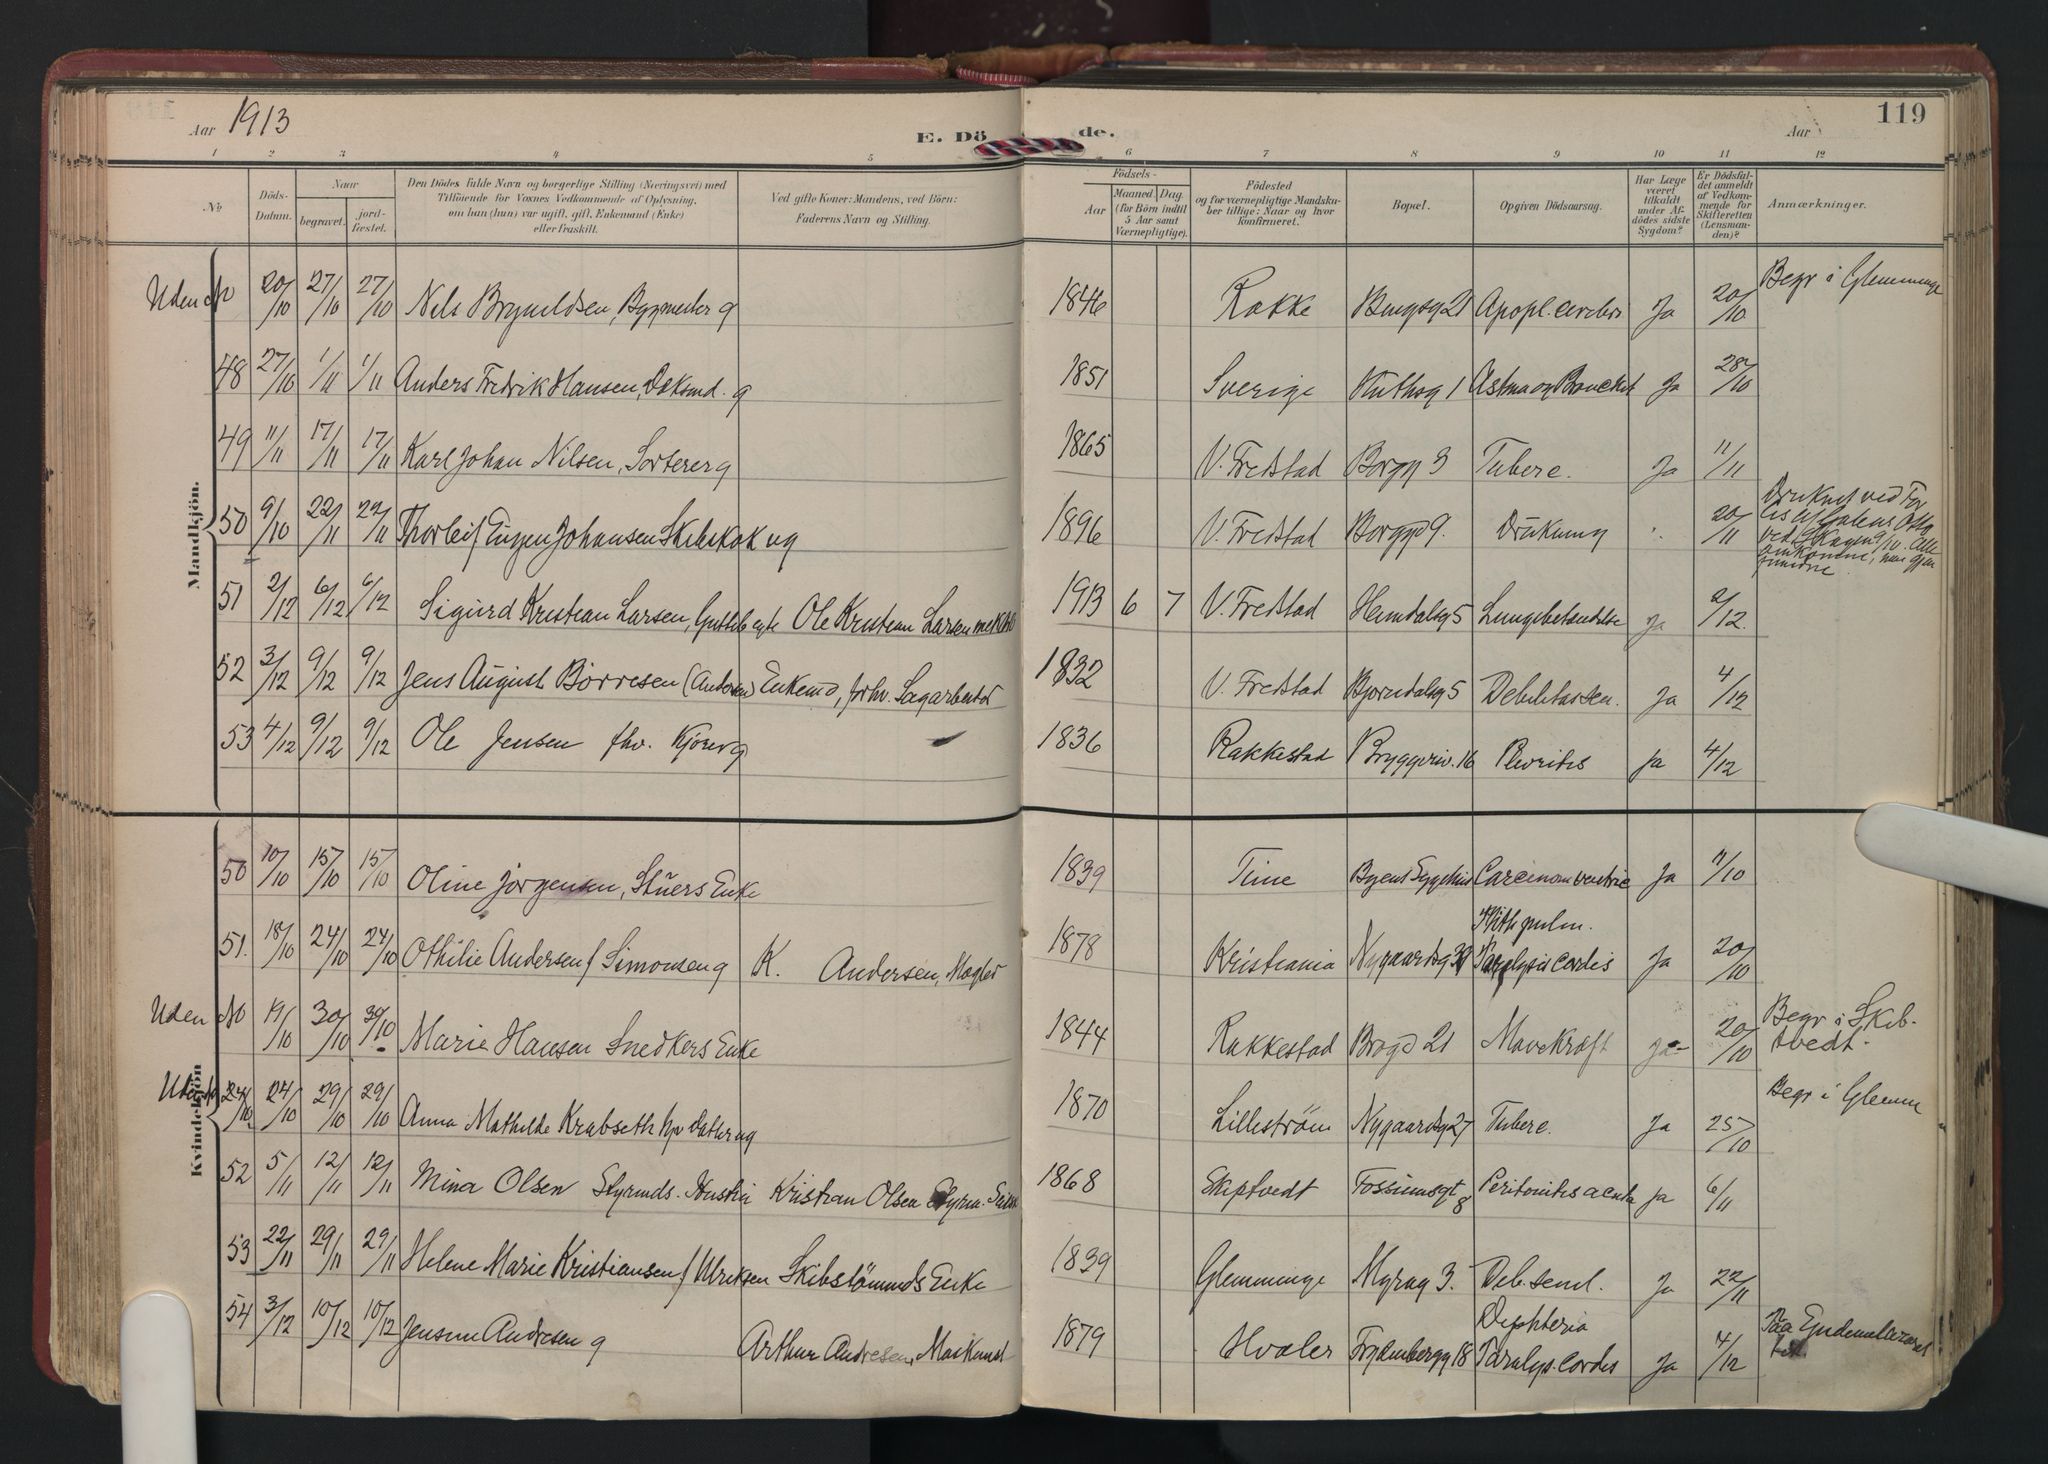 Aar 1913
E. Dö de.
Aar
119
1 2 3 4 5 6 7 8 9 10 11 12
No
Döds-Datum.
Naar
begravet.
jord-fæstet.
Den Dödes fulde Navn og borgerlige Stilling (Næringsvei) med
Tilföiende for Voxnes Vedkommende af Oplysning,
om han (hun) var ugift, gift, Enkemand (Enke)
eller fraskilt.
Ved gifte Koner: Mandens, ved Börn:
Faderens Navn og Stilling.
Födsels-
Aar
Maaned. Dag.
(for Börn indtil
5 Aar samt
Værnepligtige).
Födested
og for værnepligtige Mandsku-
ber tillige: Naar og hvor
konfirmeret.
Bopæl.
Opgiven Dödsaarsag.
Har Læge
været
tilkaldt
under Af-
dödes sidste
Sygdom?
Er Dödsfal-
det anmeldt
af Vedkom-
mende for
Skifteretten
(Lensman-
den)?
Anmærkninger.
Mandkjön.
Uden No 20/10 27/10 27/10 Nels Bryneldsen, Bygmester g 1846 Rakke 21 Apopl. cerebri Ja 20/10 Begr i Glemminge
48 27/10 1/11 1/11 Anders Fredrik Hansen, g 1851 Sverige 1 Astma og Ja 28/10
49 11/11 17/11 17/11 Karl Johan Nilsen, Sorterer g 1865 V. Fredstad 3 Tuberc. Ja 11/11
50 9/10 22/11 22/11 Thorleif Eugen Johansen Skibskok ug 1896 V. Fredstad 9. Drukning 20/11 Druknet ved
ved Skagen 9/10. Alle
omkomne,
51 2/12 6/12 6/12 Sigurd Kristian Larsen, Ole Kristian Larsen 1913 6 7 V. Fredstad Hemdalsg 5 Lungebetændelse Ja 2/12.
52 3/12 9/12 9/12 Jens August Börresen (Andersen) Enkemd, forhv. Sagarbeider 1832 V. Fredstad Bjorndalsg 5 Debilitas sen. Ja 4/12
53 4/12 9/12 9/12 Ole Jensen fhv. Kjörer g 1836 Rakkestad Bryggeriv. 16 Plevrites Ja 4/12
Kvindekjön
50 10/10 15/10 15/10 Oline Jörgensen, Stuers Enke 1839 Tune Byens Sygehus Carcinom ventric Ja 11/10
51. 18/10 24/10 24/10 Othilie Andersen f Simonsen g K. Andersen, Mægler 1878 Kristiania Nygaardsg Phth. pulm.
Paralysis cordis Ja 20/10
Uden No 19/10 30/10 30/10 Marie Hansen Snedkers Enke 1844 Rakkestad 21 Mavekræft Ja 20/10 Begr i Skib-
tvedt.
Uden No 24/10 24/10 29/10 29/10 Anna Mathilde Krabseth Hp Datter ug 1870 Lilleström Nygaardsg 27 Tuberc. Ja 25/10 Begr i Glemm
52 5/11 12/11 12/11 Mina Olsen Styrmds. Hustru Kristian Olsen Styrm. 1868 Skiptvedt Fossumsgt 8 Peritonites acuta Ja 6/11
53 22/11 29/11 29/11 Helene Marie Kristiansen f Ulriksen Skibstömmds Enke 1839 Glemminge Myrag 3. Deb. senil. Ja 22/11
54 3/12 10/12 10/12 Andresen g Arthur Andresen, Maskinist 1879 Hvaler Frydenbergg 18 Dephteria
Paralys. Cordis Ja 4/12 Paa Epidemilazaret